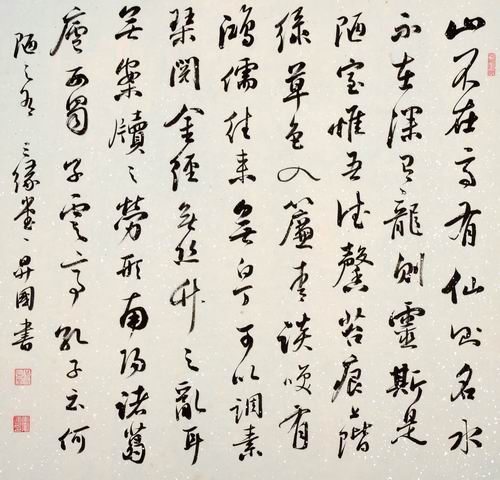 山不在高有仙則名水
不在深有龍則靈斯是
陋室惟吾德馨苔痕上階
綠草色入簾青談笑有
鴻儒往來無白丁可以調素
琴閱金經無絲竹之亂耳
無案牘之勞形南陽諸葛
廬西蜀子雲亭孔子云何
陋之有 三緣堂昇國書